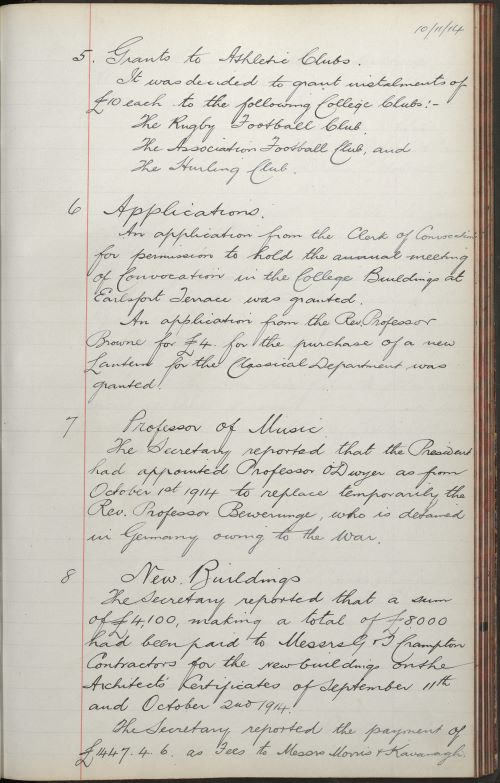 10/11/14
5. Grants to Athletic Clubs.
It was decided to grant instalments of
£10 each to the following College Clubs:-
The Rugby Football Club.
The Association Football Club, and
The Hurling Club.
6 Applications.
An application from the Clerk of Convocation
for permission to hold the annual meeting
of Convocation in the College Buildings at
Earlsfort Terrace was granted.
An application from the Rev. Professor
Browne for £4. for the purchase of a new
Lantern for the Classical Department was
granted.
7 Professor of Music
The Secretary reported that the President
had appointed Professor O'Dwyer as from
October 1st 1914 to replace temporarily the
Rev. Professor Bewerunge, who is detained
in Germany owing to the War.
8 New Buildings
The Secretary reported that a sum
of £4,100, making a total of £8,000
had been paid to Messrs G & T Crampton
Contractors for the new buildings on the
Architects' Certificates of September 11th
and October 2nd 1914.
The Secretary reported the payment of
£1447. 4. 6. as Fees to Messrs Morris & Kavanagh.